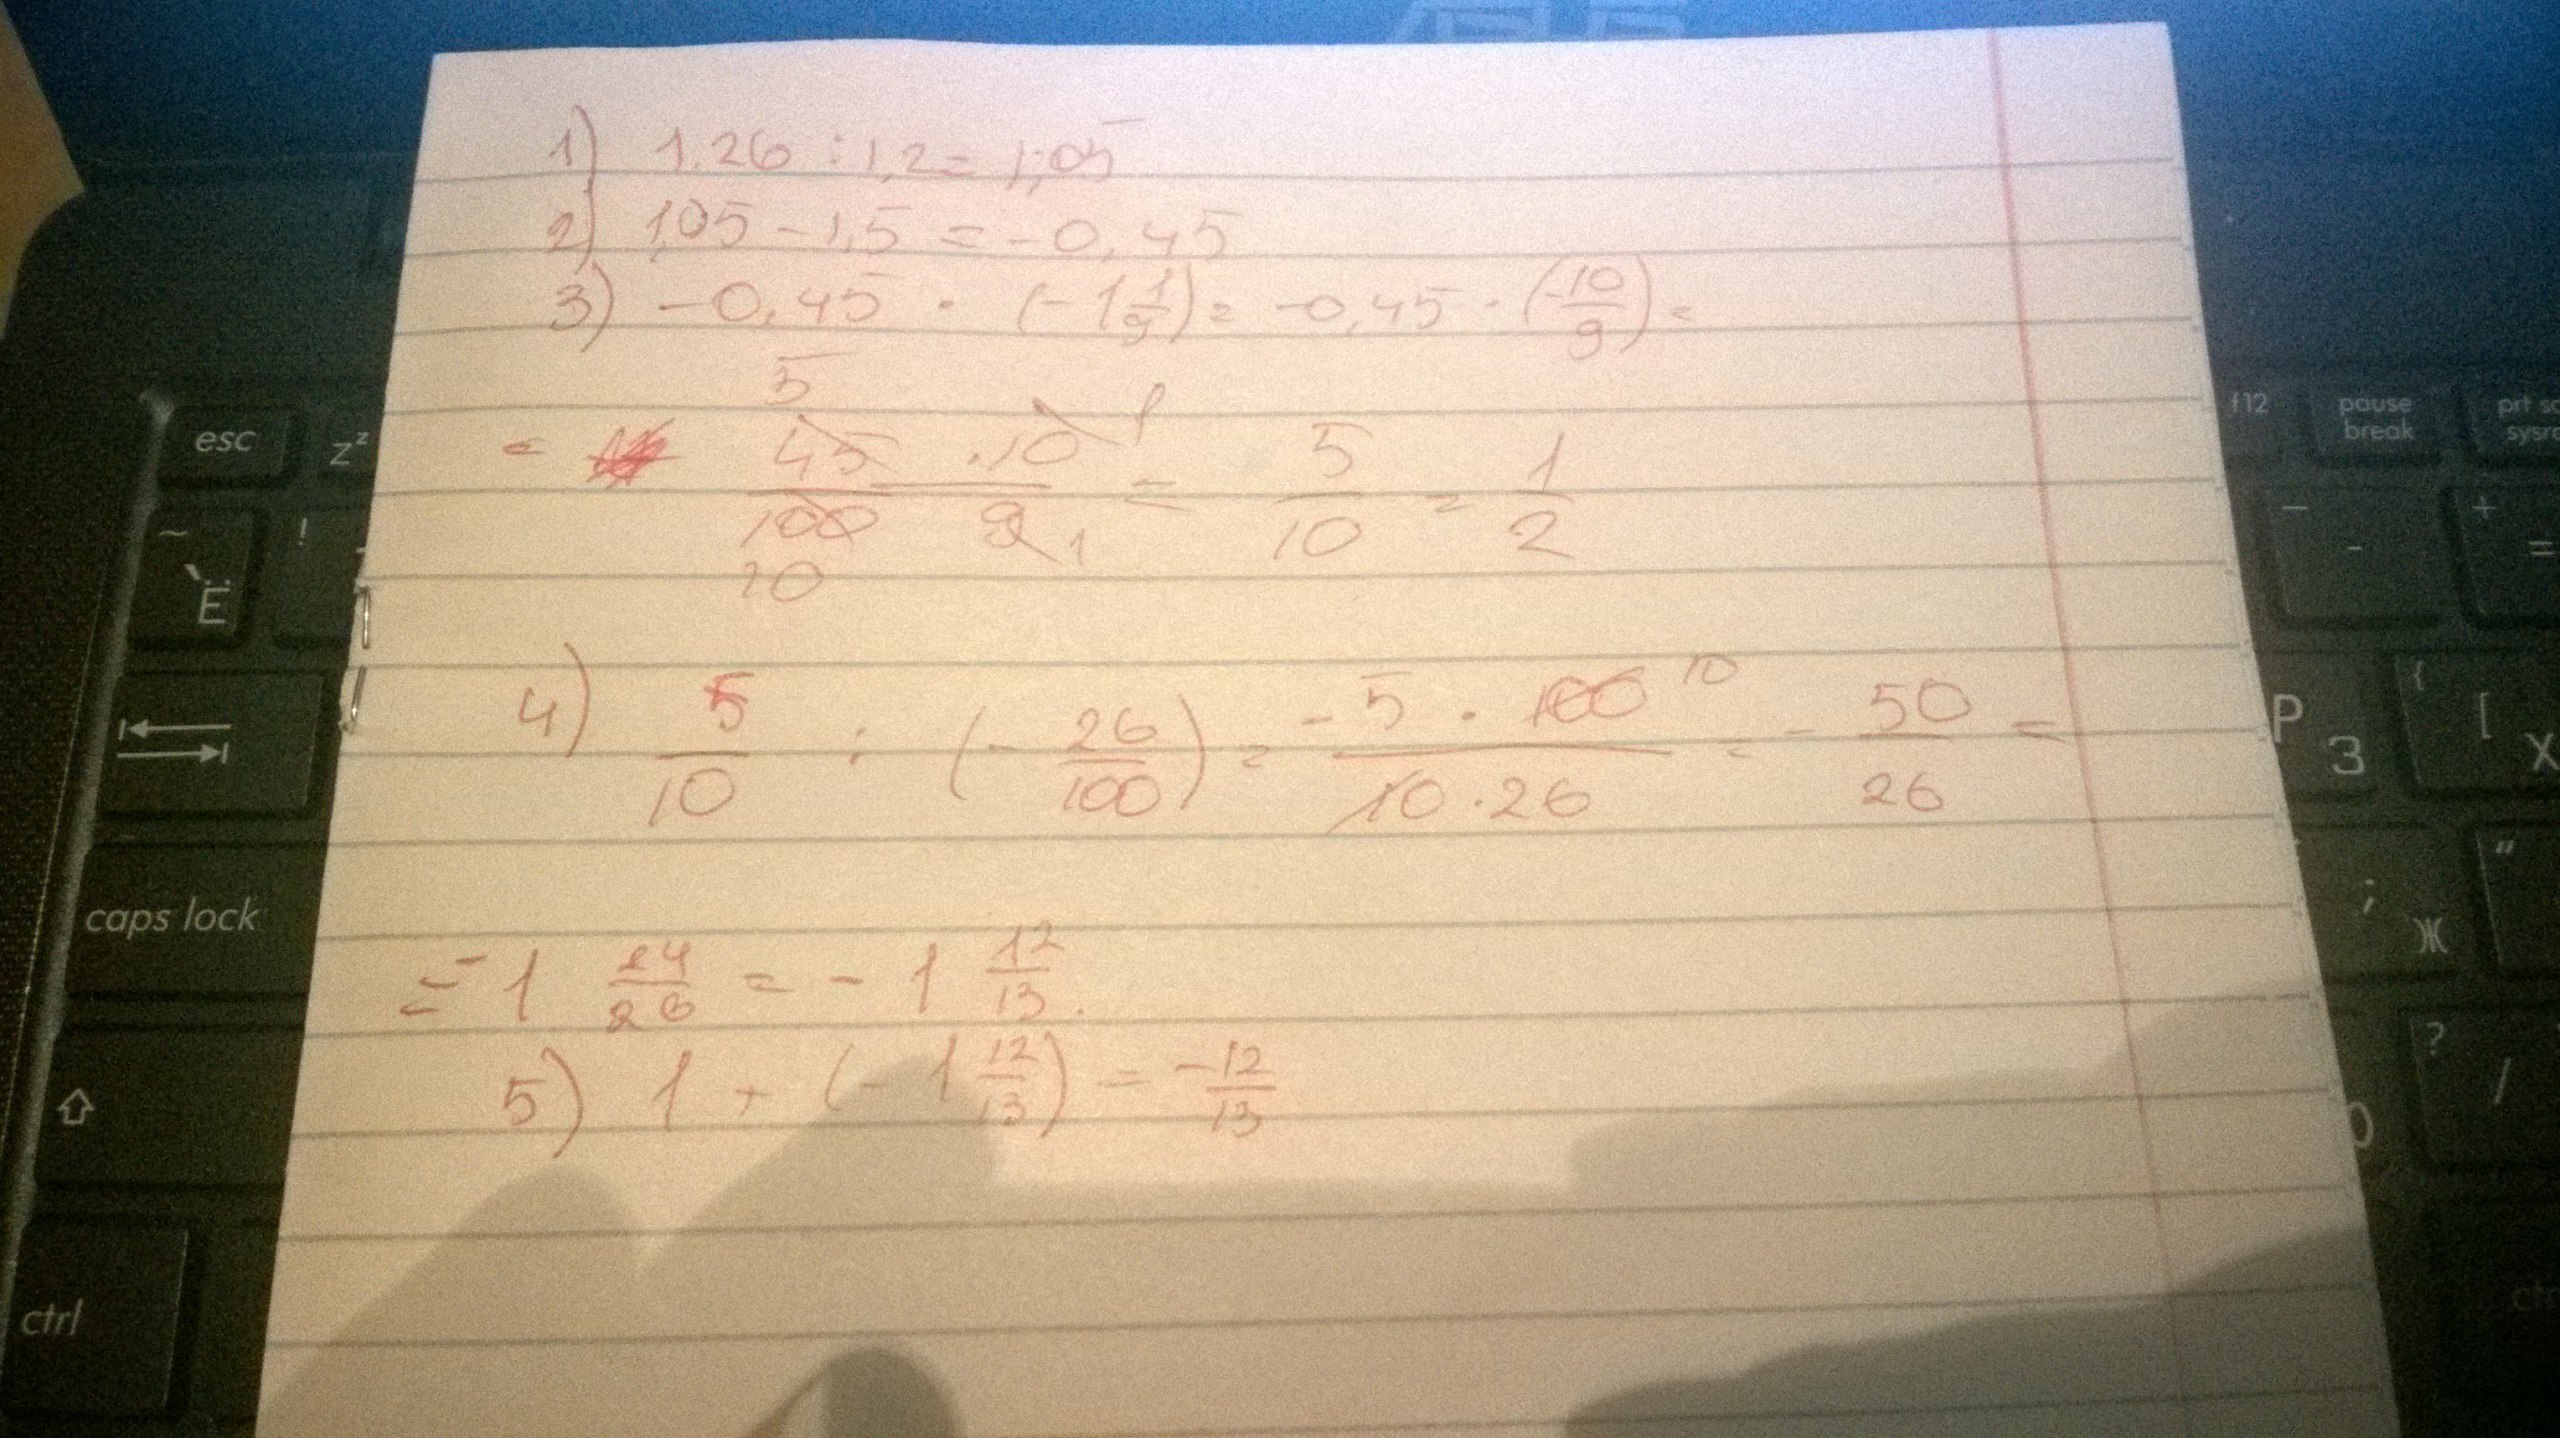 ASUS
1) 1.26 : 1,2 = 1,05
2) 1,05 - 1,5 = -0,45
3) -0,45 · (-1 1/9) = -0,45 · (-10/9) =
5
= 45 · 10 1 / 100 9 1 = 5/10 = 1/2
10
4) 5/10 : (- 26/100) = - 5 · 100 10 / 10 · 26 = - 50/26 =
= -1 24/26 = -1 12/13.
5) 1 + (-1 12/13) = -12/13
esc
zᶻ
~
Ё
!
caps lock
ctrl
f12
pause
break
prt sc
sysr
-
-
+
=
P
З
{
[
Х
;
Ж
"
?
/